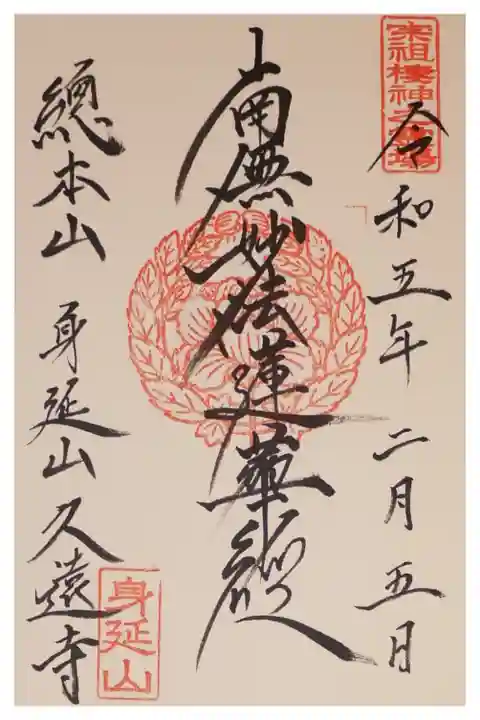 宗祖棲神之霊場
令和五年二月五日
南無妙法蓮華経
總本山 身延山久遠寺
身延山